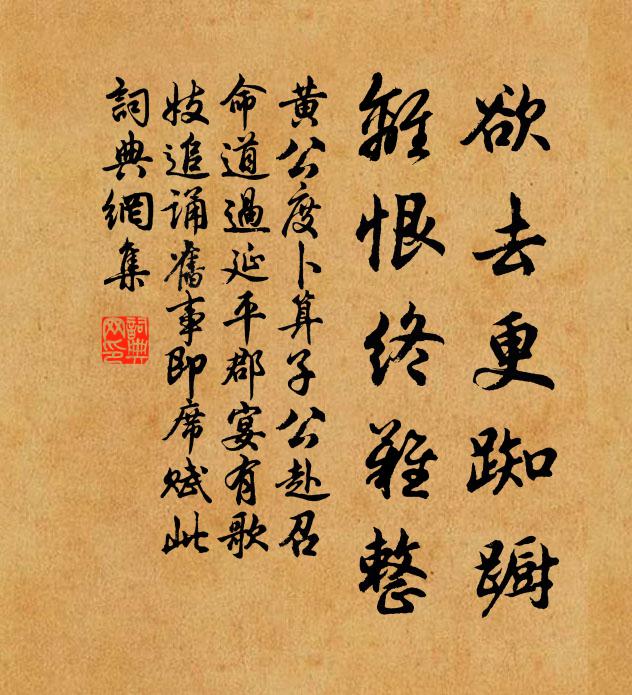 欲去更踟躕
離恨終難整
黃公度卜算子公赴召
命道過延平郡宴有歌
妓追誦舊事即席賦此
詞典網集
詞典網印